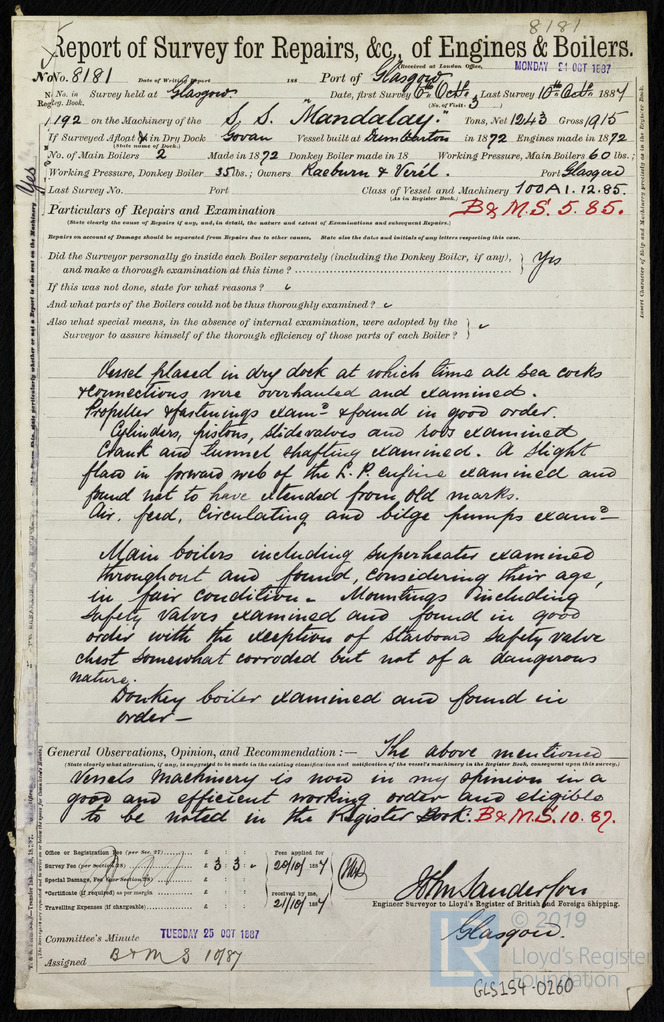 8181
Report of Survey for Repairs, &c., of Engines & Boilers.
Received at London Office, MONDAY 24 OCT 1887
No. 8181 Date of Writing Report 188 Port of Glasgow
No. in Survey held at Glasgow Date, first Survey 6th Octr Last Survey 10th Octr 1887
Reg. Book. (No. of Visits 3)
192 on the Machinery of the S. S. "Mandalay." Tons, Net 1243 Gross 1915
If Surveyed Afloat or in Dry Dock Govan Vessel built at Dumbarton in 1872 Engines made in 1872
(State name of Dock.)
No. of Main Boilers 2 Made in 1872 Donkey Boiler made in 18 Working Pressure, Main Boilers 60 lbs.;
Working Pressure, Donkey Boiler 35 lbs.; Owners Raeburn & Verel. Port Glasgow
Last Survey No. Port Class of Vessel and Machinery 100A1.12.85.
(As in Register Book.)
Particulars of Repairs and Examination B&M.S. 5.85.
(State clearly the cause of Repairs if any, and, in detail, the nature and extent of Examinations and subsequent Repairs.)
Repairs on account of Damage should be separated from Repairs due to other causes. State also the dates and initials of any letters respecting this case.
Did the Surveyor personally go inside each Boiler separately (including the Donkey Boiler, if any),
and make a thorough examination at this time? Yes
If this was not done, state for what reasons?
And what parts of the Boilers could not be thus thoroughly examined?
Also what special means, in the absence of internal examination, were adopted by the
Surveyor to assure himself of the thorough efficiency of those parts of each Boiler?
Vessel placed in dry dock at which time all sea cocks
& connections were overhauled and examined.
Propeller & fastenings examd & found in good order.
Cylinders, pistons, slide valves and rods examined
Crank and tunnel shafting examined. A slight
flaw in forward web of the L.P. engine examined and
found not to have extended from old marks.
Air, feed, Circulating and bilge pumps examd
Main boilers including superheater examined
throughout and found, considering their age,
in fair condition. Mountings including
safety valves examined and found in good
order with the exeption of Starboard safety valve
chest somewhat corroded but not of a dangerous
nature.
Donkey boiler examined and found in
order
General Observations, Opinion, and Recommendation:— The above mentioned
(State clearly what alteration, if any, is suggested to be made in the existing classification and notification of the vessel's machinery in the Register Book, consequent upon this survey.)
Vessels machinery is now in my opinion in a
good and efficient working order and eligible
to be noted in the Register Book. B&M.S. 10.87.
Office or Registration Fee (per Sec. 27) £ : : Fees applied for
Survey Fee (per Section 28) £ 3 : 3 : 20/10/1887
Special Damage Fee (per Section 28) £ : :
*Certificate (if required) as per margin £ : : received by me,
Travelling Expenses (if chargeable) £ : : 21/10/1887
John Sanderson
Engineer Surveyor to Lloyd's Register of British and Foreign Shipping.
Glasgow.
Committee's Minute TUESDAY 25 OCT 1887
Assigned B & M S 10/87
© 2019
LR
Lloyd's Register
Foundation
GLS154-0260
Yes
Insert Character of Ship and Machinery precisely as in the Register Book.